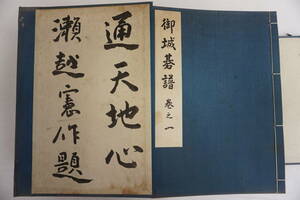 御城碁譜 巻之一
通天地心
瀬越憲作題